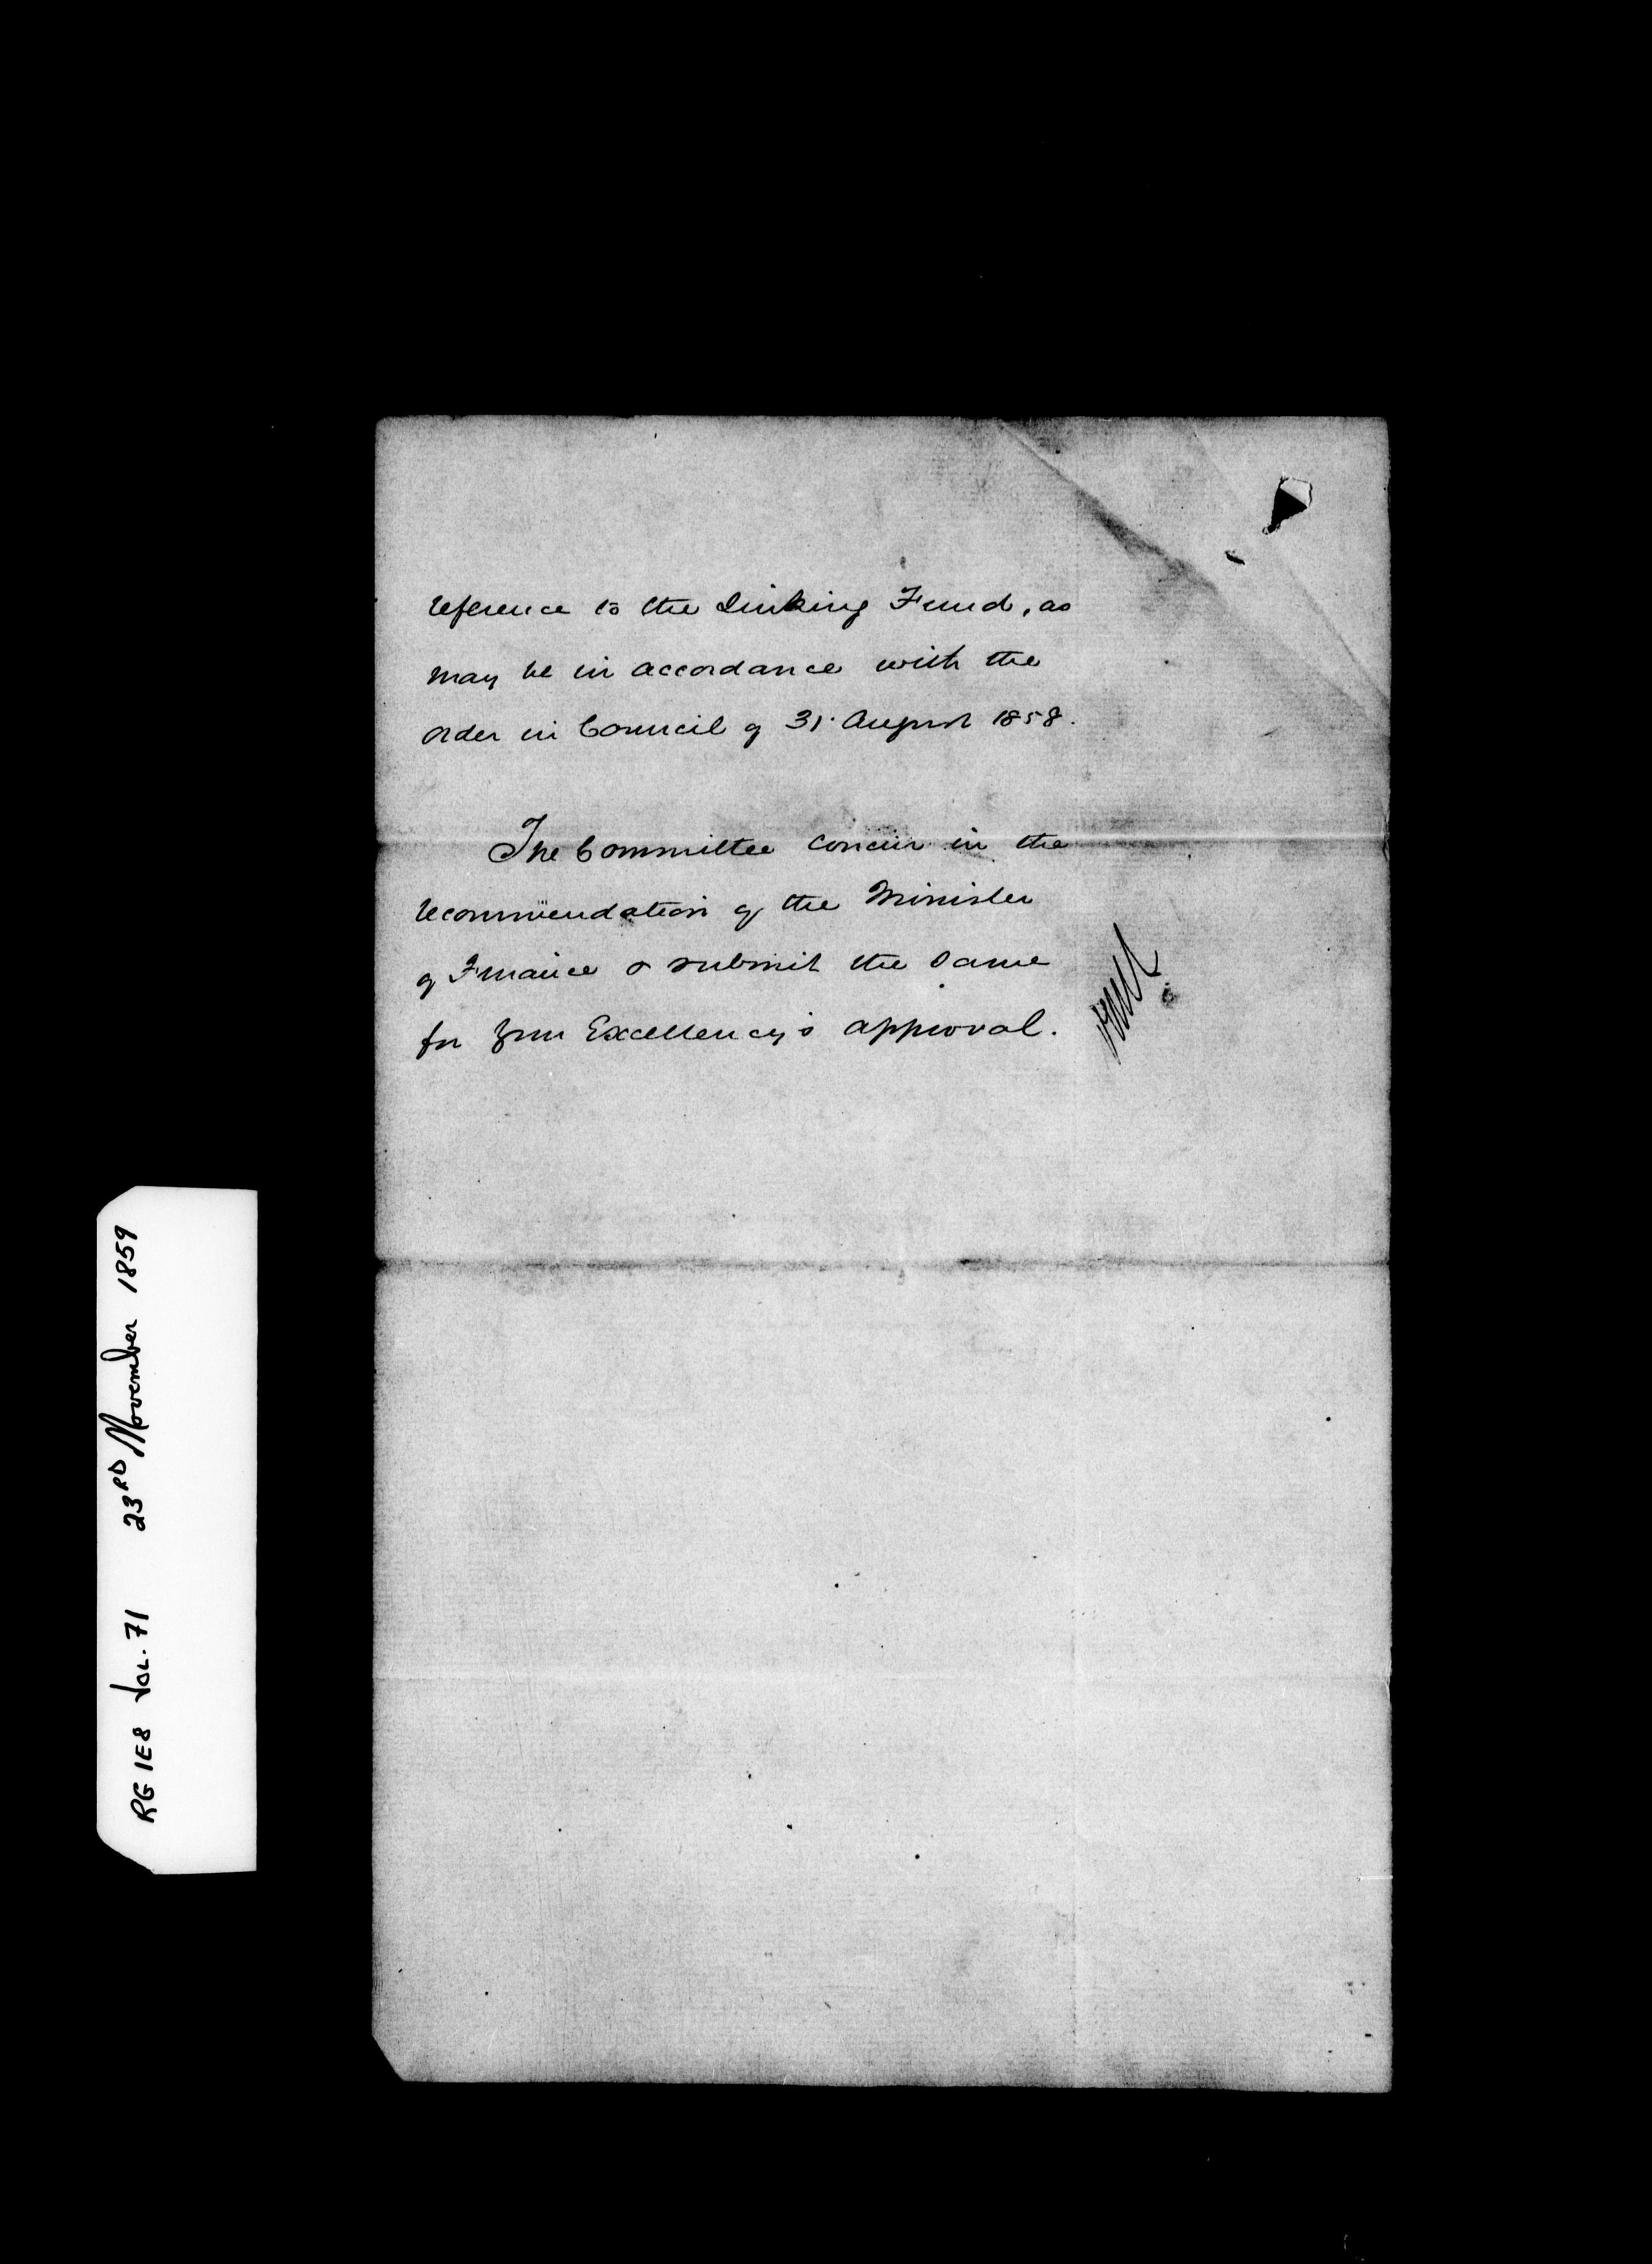 reference to the Sinking Fund, as
may be in accordance with the
Order in Council of 31 August 1858.
The Committee concur in the
recommendation of the Minister
of Finance & submit the same
for Your Excellency's approval.
RG 1E8 VOL. 71 23RD November 1859